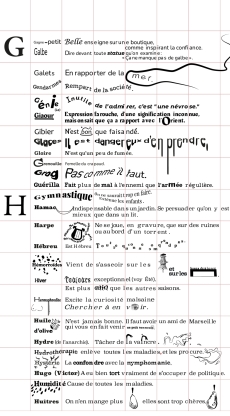 G
petit Belle enseigne sur une boutique,
comme inspirant la confiance.
Galbe Dire devant toute statue qu'on examine :
« Ça ne manque pas de galbe ».
Galets En rapporter de la mer.
Gendarmes Rempart de la société.
Génie de l'admirer, c'est "une névrose."
Giaour Expression farouche, d'une signification inconnue,
mais on sait que ça a rapport avec l'Orient.
Gibier N'est bon que faisandé.
Glace Il est dangereux d'en prendre.
Gloire N'est qu'un peu de fumée.
Grammaire
Grog Pas comme il faut.
Guérilla Fait plus de mal à l'ennemi que l'armée régulière.
Gymnastique
H
Hamac Indispensable dans un jardin. Se persuader qu'on y est
mieux que dans un lit.
Harpe Ne se joue, en gravure, que sur des ruines
ou au bord d'un torrent.
Hébreu Est Hébreu
Hémorroïdes Vient de s'asseoir sur les
et sur les
Hiver Toujours exceptionnel (voy. Été).
Est plus sain que les autres saisons.
Excite la curiosité malsaine
Chercher à en voir.
Huile d'olive N'est jamais bonne. Il faut avoir un ami de Marseille
qui vous en fait venir
Hydre de l'anarchie. Tâcher de la vaincre.
Hydrothérapie enlève toutes les maladies, et les procure.
Hystérie La confondre avec la nymphomanie.
Hugo (Victor) A eu bien tort vraiment de s'occuper de politique.
Humidité Cause de toutes les maladies.
Huitres On n'en mange plus elles sont trop chères